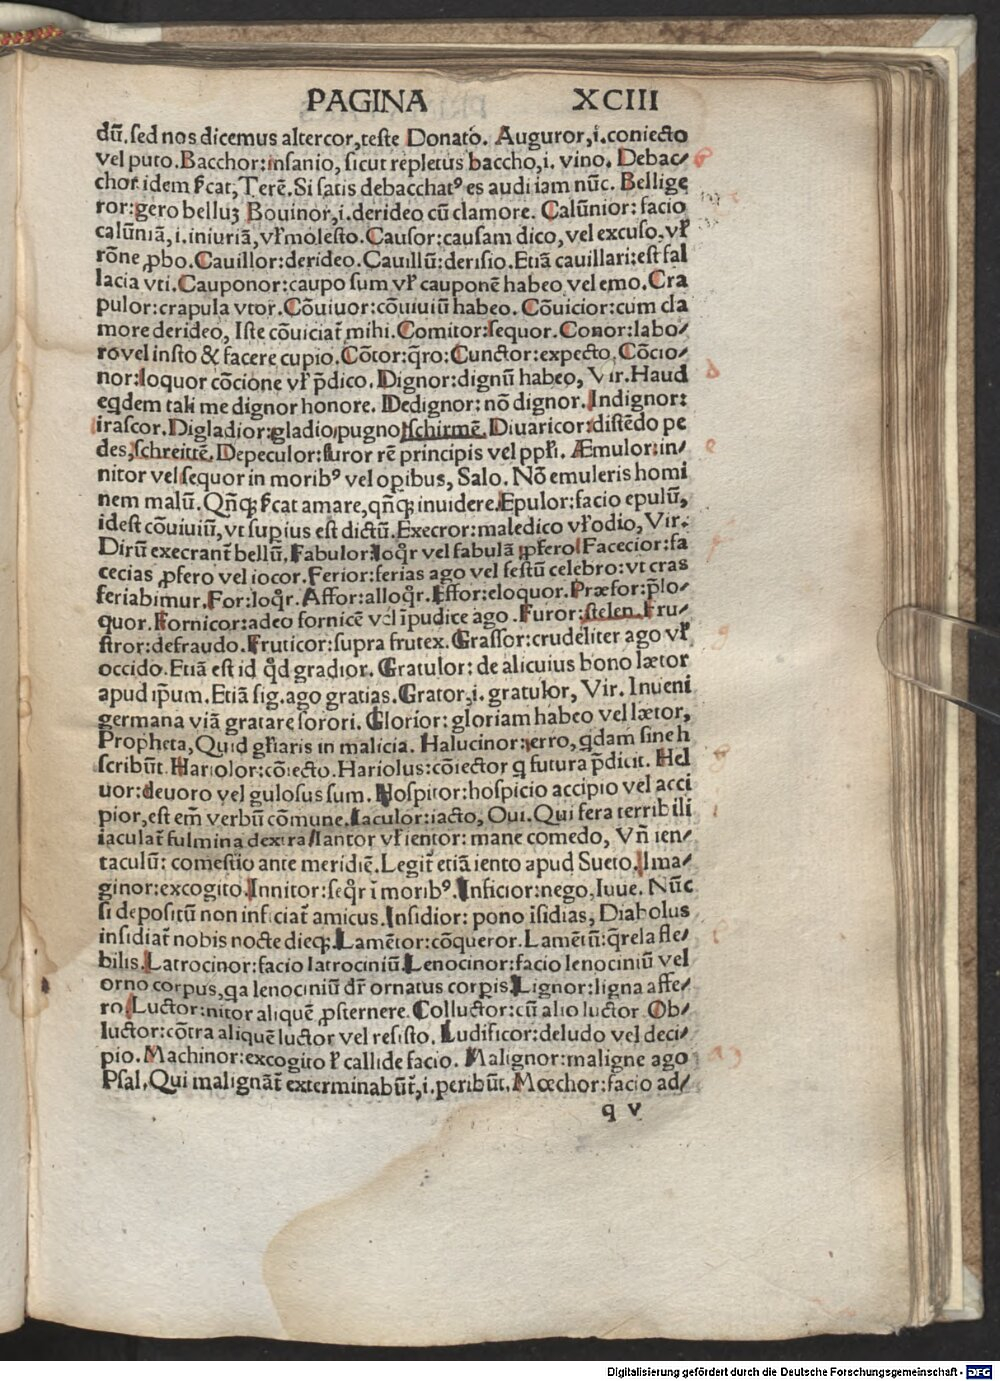 PAGINA XCIII
dū. sed nos dicemus altercor, teste Donato. Auguror, i. coniecto
vel puto. Bacchor: insanio, sicut repletus baccho, i. vino. Debac⸗
chor idem ſcat, Terē. Si satis debacchatꝰ es audi iam nūc. Bellige
ror: gero belluꝫ Bouinor, i. derideo cū clamore. Calūnior: facio
calūniā, i. iniuriā, vꝉ molesto. Causor: causam dico, vel excuso. vꝉ
rōne ꝓbo. Cauillor: derideo. Cauillū: derisio. Etiā cauillari: est fal
lacia vti. Cauponor: caupo sum vꝉ cauponē habeo vel emo. Cra
pulor: crapula vtor. Cōuiuor: cōuiuiū habeo. Cōuicior: cum cla
more derideo, Iste cōuiciat̄ mihi. Comitor: sequor. Conor: labo⸗
ro vel insto & facere cupio. Cōtor: q̄ro: Cunctor: expecto. Cōcio⸗
nor: loquor cōcione vꝉ p̄dico. Dignor: dignū habeo, Vir. Haud
eqdem tali me dignor honore. Dedignor: nō dignor. Indignor:
irascor. Digladior: gladio pugno schirmē. Diuaricor: distēdo pe
des, schreittē. Depeculor: furor rē principis vel pp̄ꝉi. Æmulor: in⸗
nitor vel sequor in moribꝰ vel opibus, Salo. Nō emuleris homi
nem malū. Qn̄qꝫ ſcat amare, qn̄qꝫ inuidere. Epulor: facio epulū,
idest cōuiuiū, vt supius est dictū. Execror: maledico vꝉ odio, Vir.
Dirū execrant̄ bellū. Fabulor: loqr̄ vel fabulā ꝓfero Facecior: fa
cecias ꝓfero vel iocor. Ferior: ferias ago vel festū celebro: vt cras
feriabimur. For: loqr̄. Affor: alloqr̄. Effor: eloquor. Præfor: p̄lo⸗
quor. Fornicor: adeo fornicē vel īpudice ago. Furor: stelen. Fru⸗
stror: defraudo. Fruticor: supra frutex. Grassor: crudeliter ago vꝉ
occido. Etiā est id qd̄ gradior. Gratulor: de alicuius bono lætor
apud ip̄um. Etiā sig. ago gratias. Grator, i. gratulor, Vir. Inueni
germana viā gratare sorori. Glorior: gloriam habeo vel lætor,
Propheta, Quid gꝉiaris in malicia. Halucinor: erro, qdam sine h
scribūt. Hariolor: cōiecto. Hariolus: cōiector q futura p̄dicit. Hel
uor: deuoro vel gulosus sum. Hospitor: hospicio accipio vel acci
pior, est em̄ verbū cōmune. Iaculor: iacto, Oui. Qui fera terribili
iaculat̄ fulmina dextra Iantor vꝉ ientor: mane comedo, Vn̄ ien⸗
taculū: comestio ante meridiē. Legit̄ etiā iento apud Sueto. Ima⸗
ginor: excogito. Innitor: seqr̄ ī moribꝰ. Inficior: nego, Iuue. Nūc
si depositū non inficiat̄ amicus. Insidior: pono īsidias, Diabolus
insidiat̄ nobis nocte dieqꝫ. Lamētor: cōqueror. Lamētū: q̄rela fle⸗
bilis. Latrocinor: facio latrociniū. Lenocinor: facio lenociniū vel
orno corpus, qa lenociniū dr̄ ornatus corpis. Lignor: ligna affe⸗
ro. Luctor: nitor aliquē ꝓsternere. Colluctor: cū alio luctor. Ob⸗
luctor: cōtra aliquē luctor vel resisto. Ludificor: deludo vel deci⸗
pio. Machinor: excogito ꝉ callide facio. Malignor: maligne ago
Psal. Qui malignāt̄ exterminabūt̄, i. peribūt. Mœchor: facio ad⸗
q v
Digitalisierung gefördert durch die Deutsche Forschungsgemeinschaft - DFG